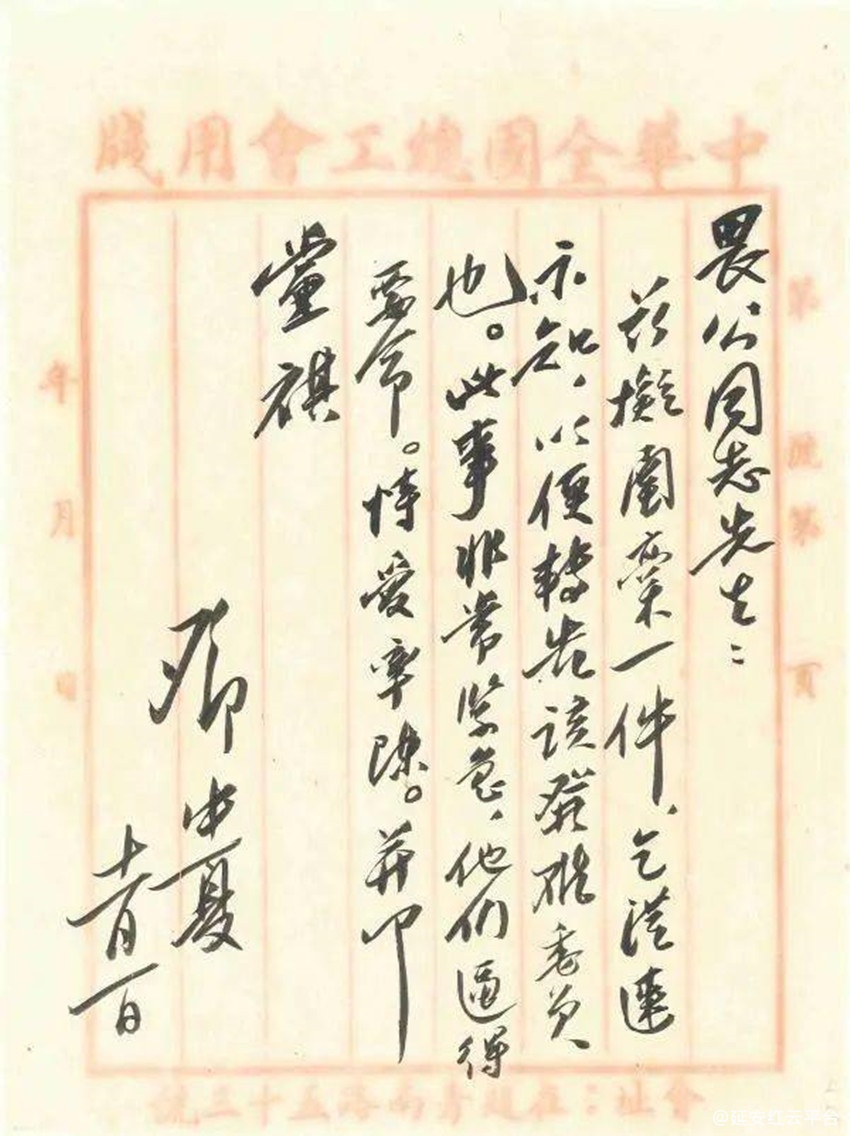 中華全國總工會用牋
第 號第 頁
畏公同志先生：
茲擬一件、乞從速
示知，以便轉告該委員
也。此事非常緊急，他們逼得
要命。恃愛率陳。并叩
黨祺
鄧中夏
十一月一日
年 月 日
會址：在越秀南路五十三號
@延安红云平台